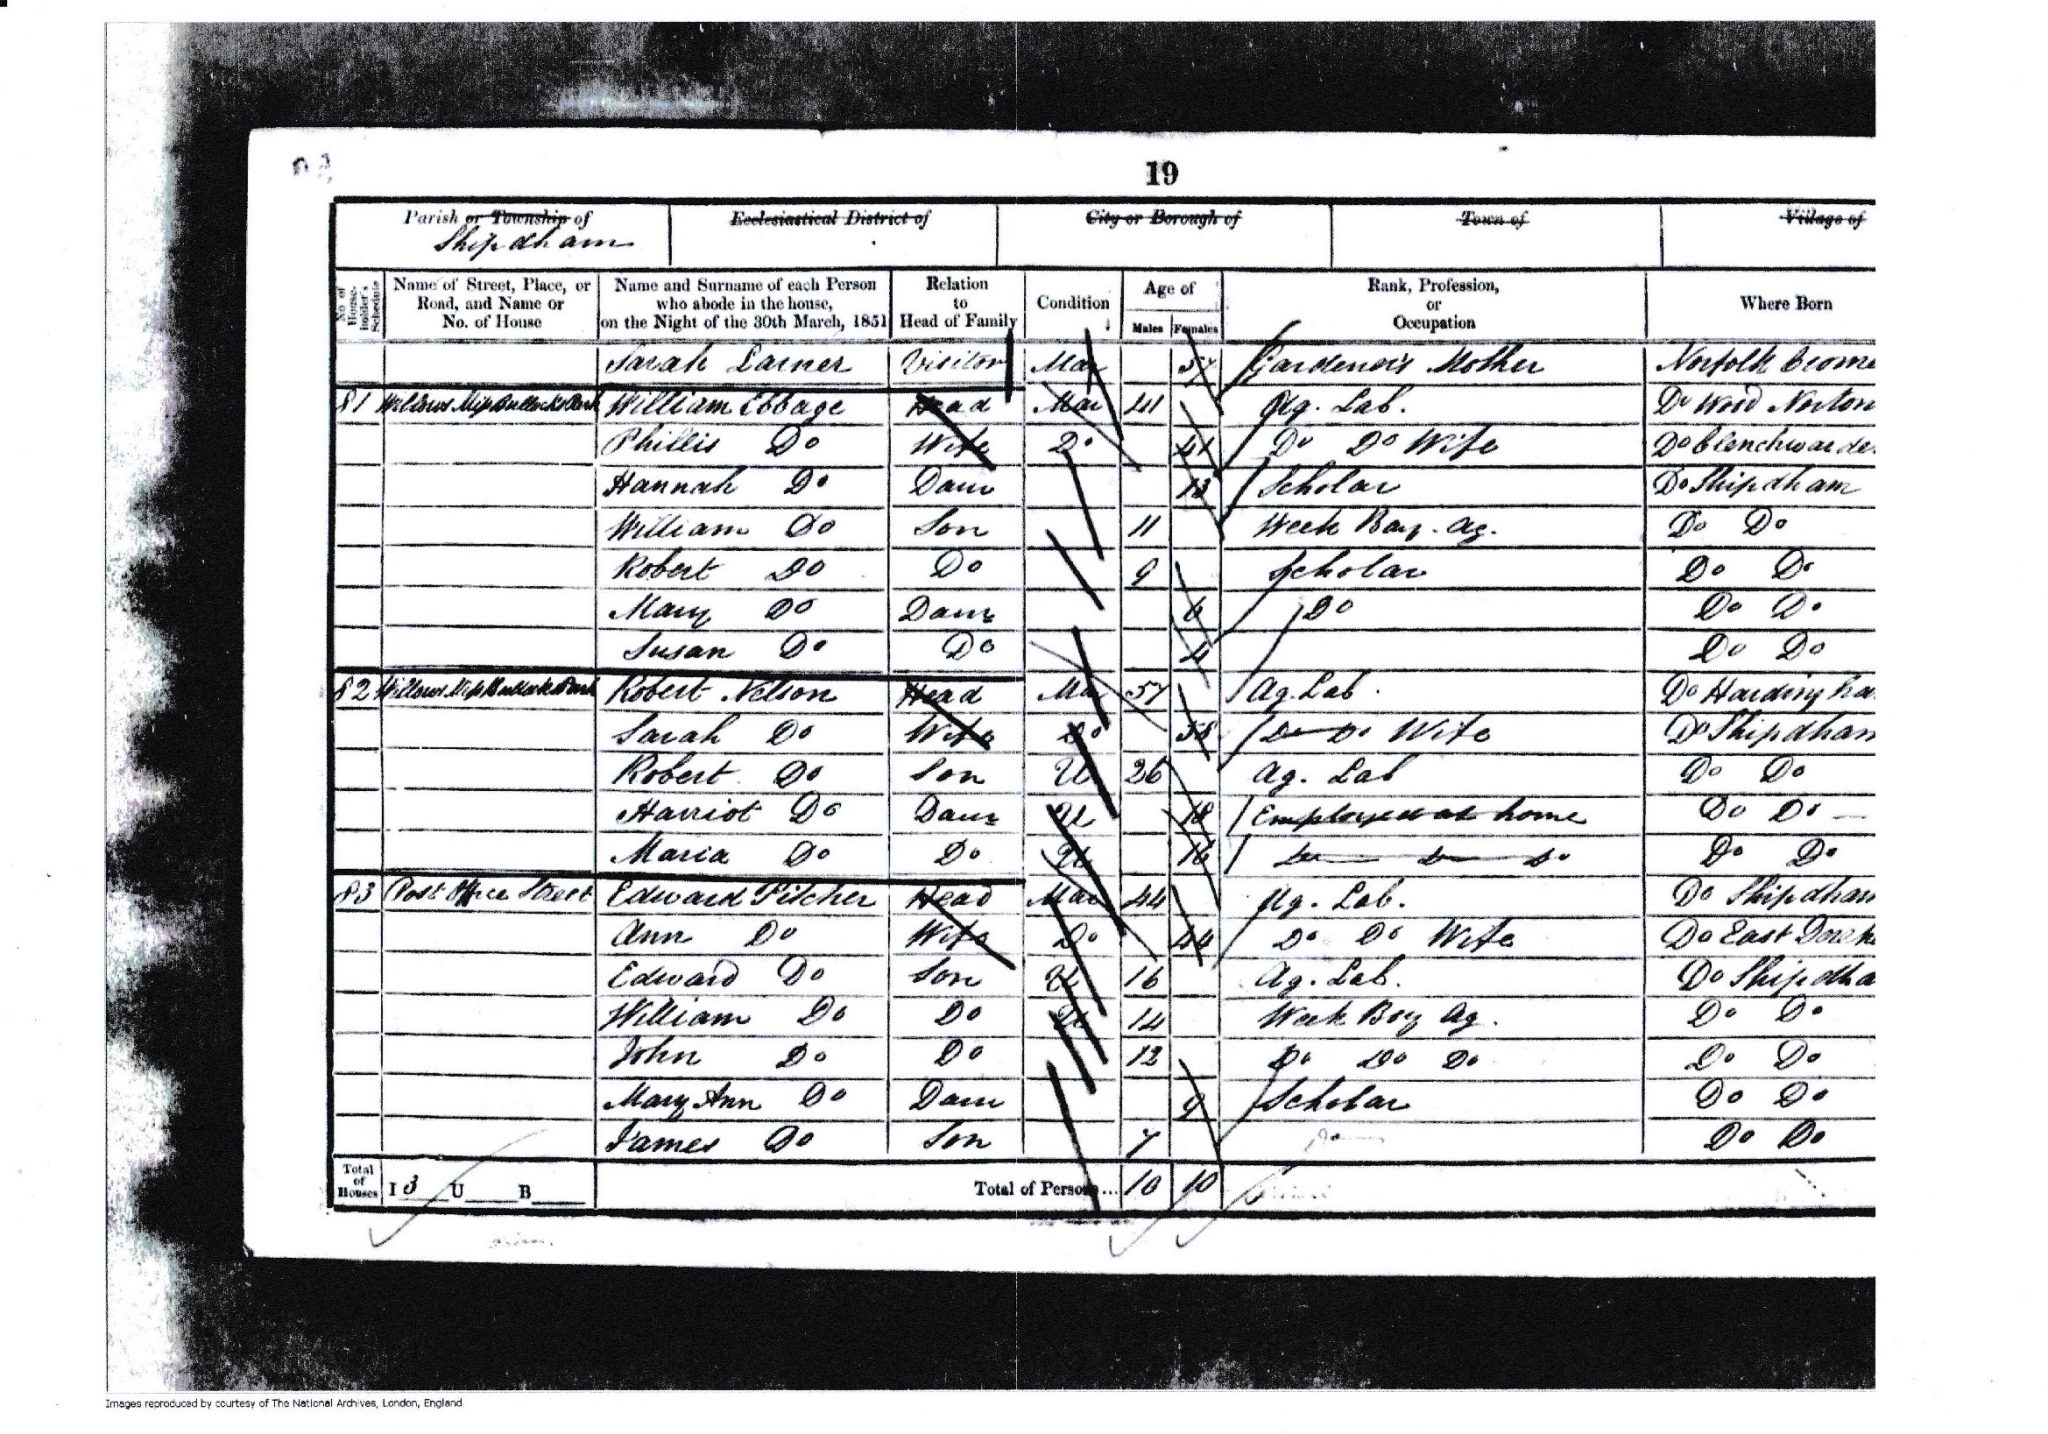 19
Parish or Township of Ecclesiastical District of City or Borough of Town of Village of
Shipdham
No. of House-holder's Schedule Name of Street, Place, or Road, and Name or No. of House Name and Surname of each Person who abode in the house, on the Night of the 30th March, 1851 Relation to Head of Family Condition Age of Males Females Rank, Profession, or Occupation Where Born
Sarah Larner Visitor Mar 57 Gardener's Mother Norfolk
81 William Ebbage Head Mar 41 Ag. Lab. Do Wood Norton
Phillis Do Wife Do 41 Do Do Wife Do
Hannah Do Daur 13 Scholar Do Shipdham
William Do Son 11 Week Boy. Ag. Do Do
Robert Do Do 9 Scholar Do Do
Mary Do Daur 6 Do Do Do
Susan Do Do 4 Do Do
82 Robert Nelson Head Mar 57 Ag. Lab. Do Hardingha
Sarah Do Wife Do 58 Do Do Wife Do Shipdham
Robert Do Son U 26 Ag. Lab Do Do
Harriot Do Daur U 18 Employed at home Do Do
Maria Do Do U 16 Do Do Do Do Do
83 Post Office Street Edward Pitcher Head Mar 44 Ag. Lab. Do Shipdham
Ann Do Wife Do 44 Do Do Wife Do East Dereh
Edward Do Son U 16 Ag. Lab. Do Shipdha
William Do Do U 14 Week Boy Ag. Do Do
John Do Do 12 Do Do Do Do Do
Mary Ann Do Daur 9 Scholar Do Do
James Do Son 7 Do Do
Total of Houses I 3 U B Total of Persons... 10 10
Images reproduced by courtesy of The National Archives, London, England.